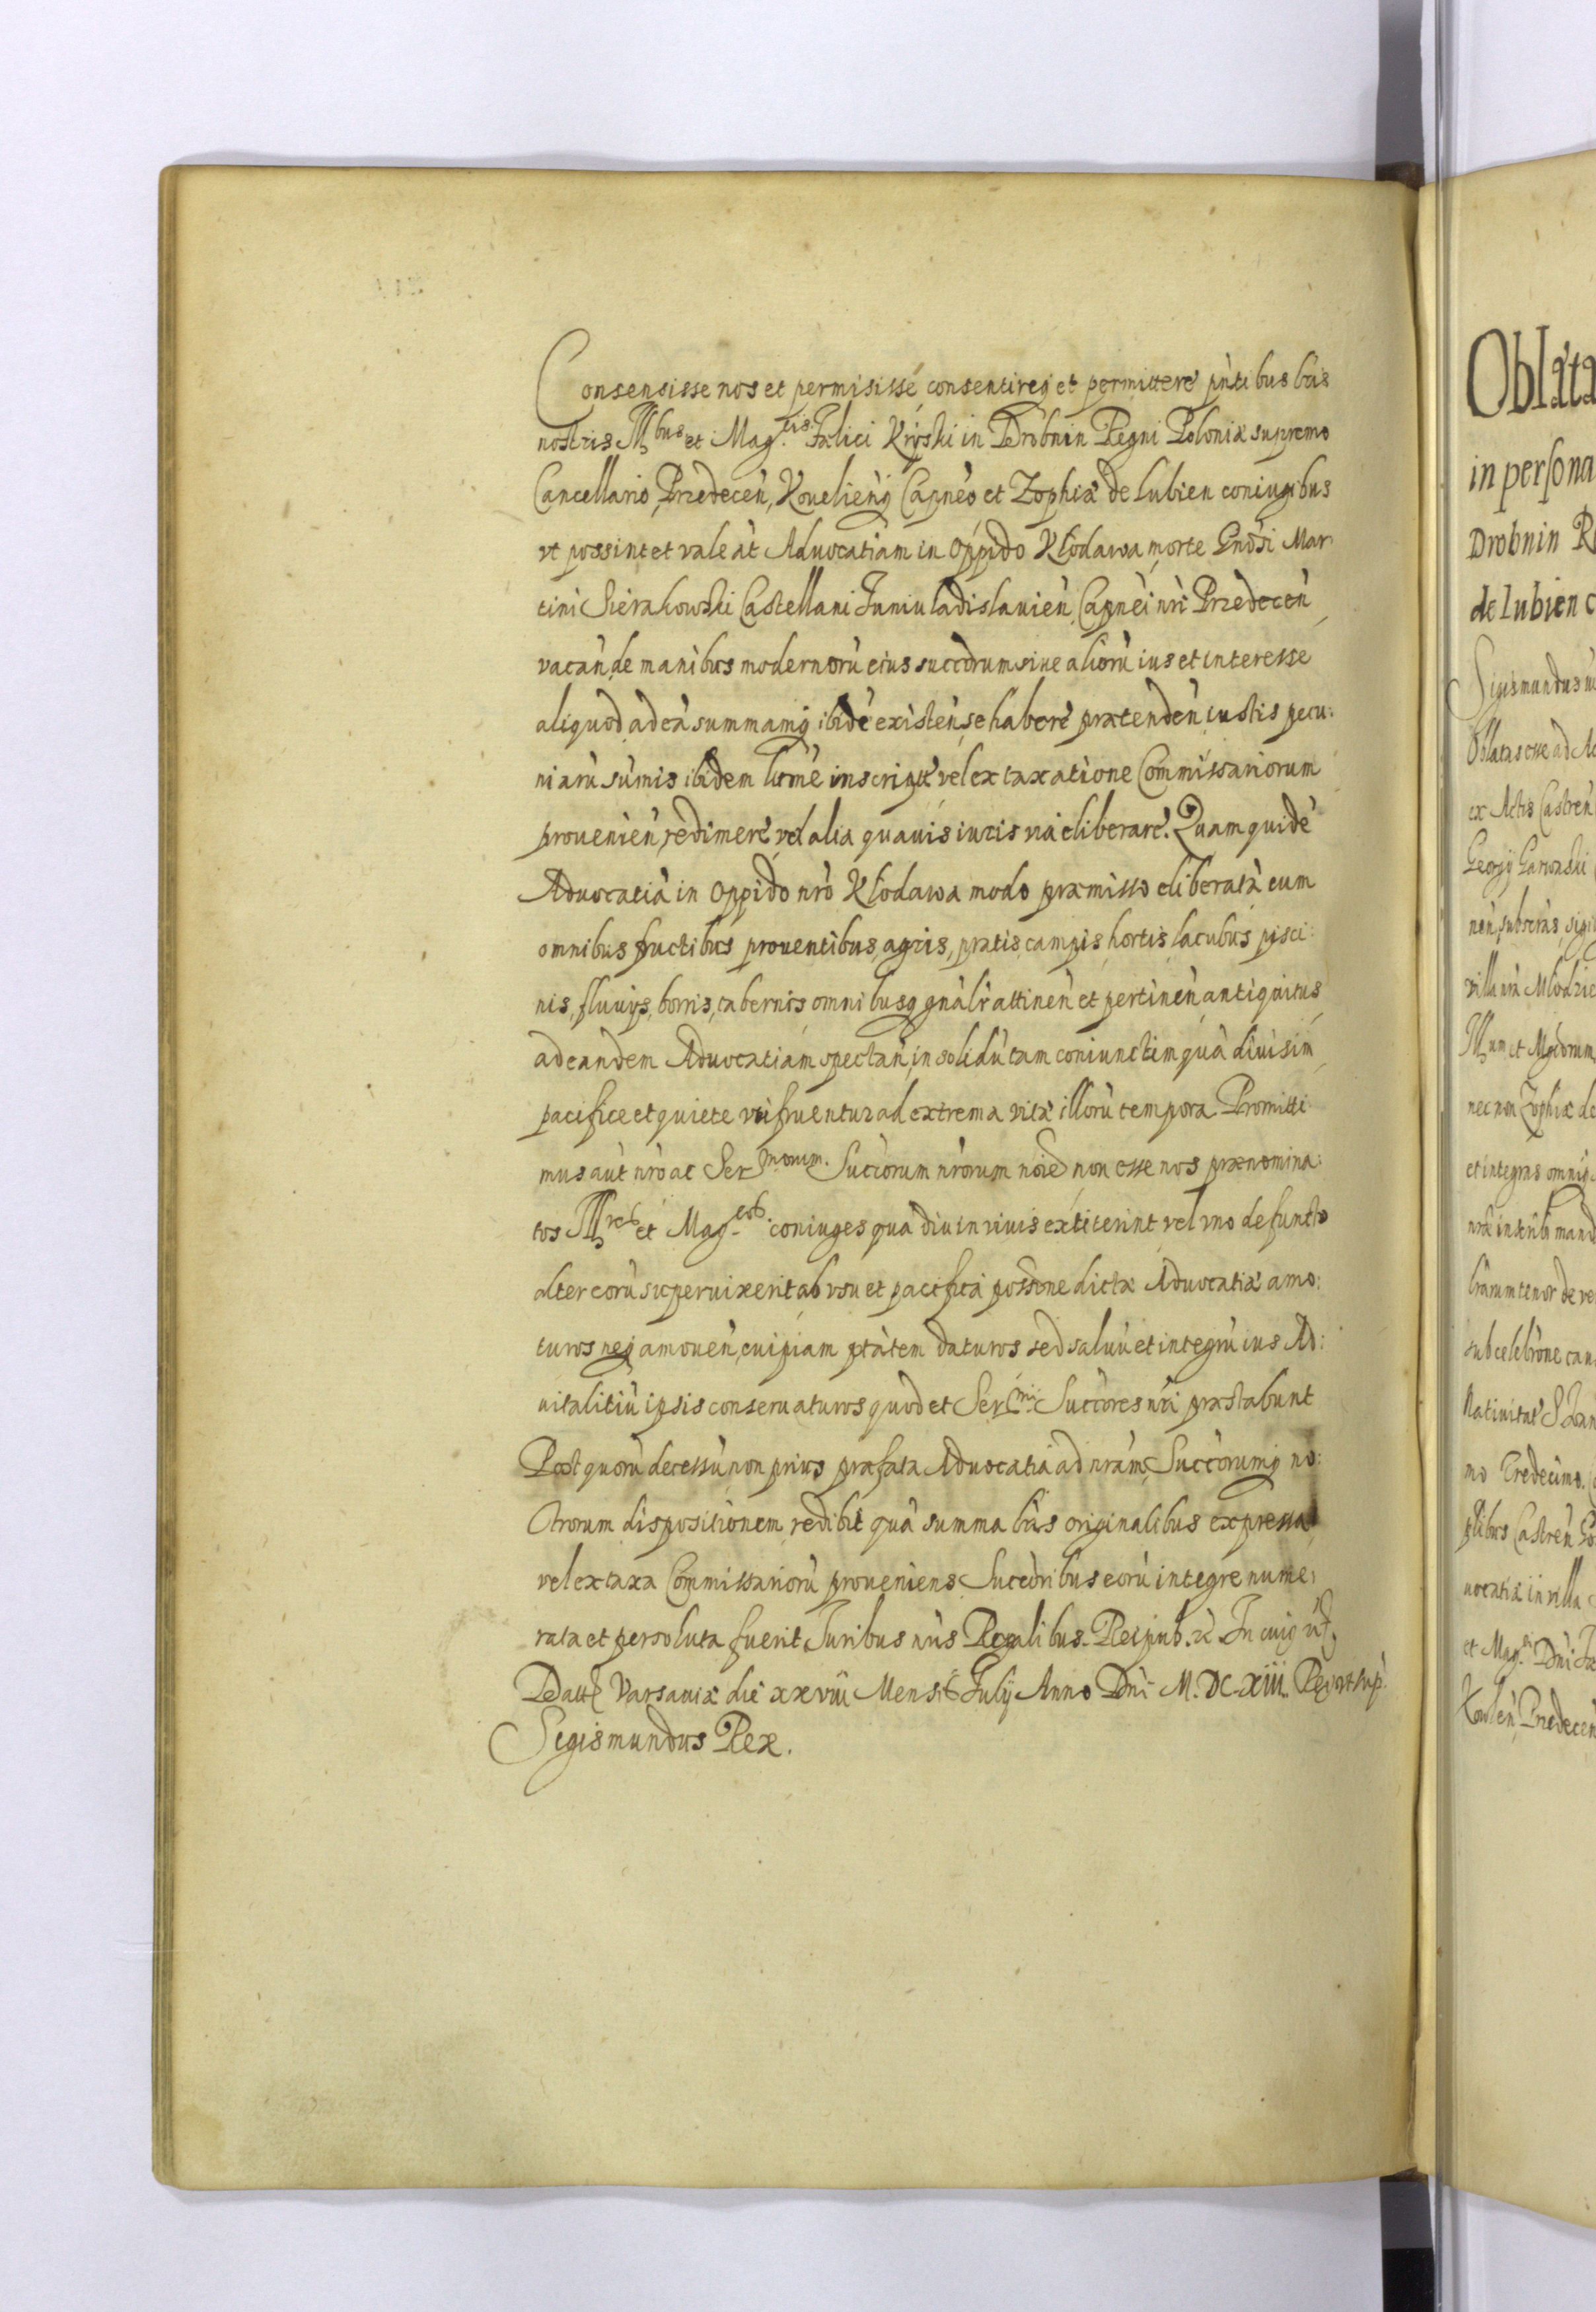 Consensisse nos et permisissé consentireq et permitterè pntibus lris
nostris Illbus et Mag.cis Fælici Kryski in Drobnin Regni Poloniæ supremo
Cancellario, Przedecen, Kovelienq Capneo et Zophiæ de Lubien coniugibus
vt possint et valeàt Aduocatiam in Oppido Kłodawa morte Gnosi Mar
tini Sierakowski Castellani Iuniuladislauien Capnei nri Przedecen
vacan, de manibus modernorù eius succorum siue aliorù ius et interesse
aliquod ad eà summamq ibidè existen, se haberè prætenden iustis pecu:
niarù sumis ibidem litme inscript vel ex taxatione Commissariorum
prouenien, redimerè vel alia quauis iuris via eliberarè. Quamquidè
Aduocatià in Oppido nro Kłodawa modo præmisso eliberatà cum
omnibus fructibus prouentibus, agris, pratis, campis, hortis, lacubus pisci:
nis, fluuijs, borris, tabernis omnibusq gnàlr attinen et pertinen antiquitus
ad eandem Aduocatiam spectan, in solidù tam coniunctim quà diuisim
pacifice et quiete vti fruentur ad extrema vitæ illorù tempora. Promitti
mus aut nro ac Sermorum. Succorum nrorum noie non esse nos prænomina:
tos Illres et Mag.cos coniuges quadiu in viuis extiterint vel vno defuncto
alter eorù superuixerit ab vsu et pacifica possone dictæ Aduocatiæ amo:
turos neq amouen, cuipiam ptàtem daturos sed saluù et integrù ius Ad:
uitalitiù ipsis conseruaturos quod et Sermi Succores nri præstabunt
Post quorù decessù non prius præfata Aduocatia ad nram Succorumq no:
strorum dispositionem redibit quà summa lris originalibus expressa
vel ex taxa Commissariorù proueniens Succoribus eorù integre nume:
rata et persoluta fuerit, Iuribus nris Regalibus. Reipub. &c In cuiq rf.
Datt Varsauiæ die xxviii Mensis Iulij Anno Dni M.DC.XIII. Regnor sup.
Sigismundus Rex.
Oblata
in persona
Drobnin R
de Lubien c
Sigismundus
Oblatas esse ad Ac
ex Actis Castren
Georgij Garwaski
nen, subscras, sigi
villa nra Młodzie
Illum et Mgcorum
nec non Zophiæ de
et integras omniq
nra inscribi mand
lrarum tenor de ve
sub celebrone can
Natiuitat S Ioan
mo Tredecimo.
plibus Castren Go
uocatiæ in villa
et Mag.ci Dni Fæ
Kowlen, Przedecen